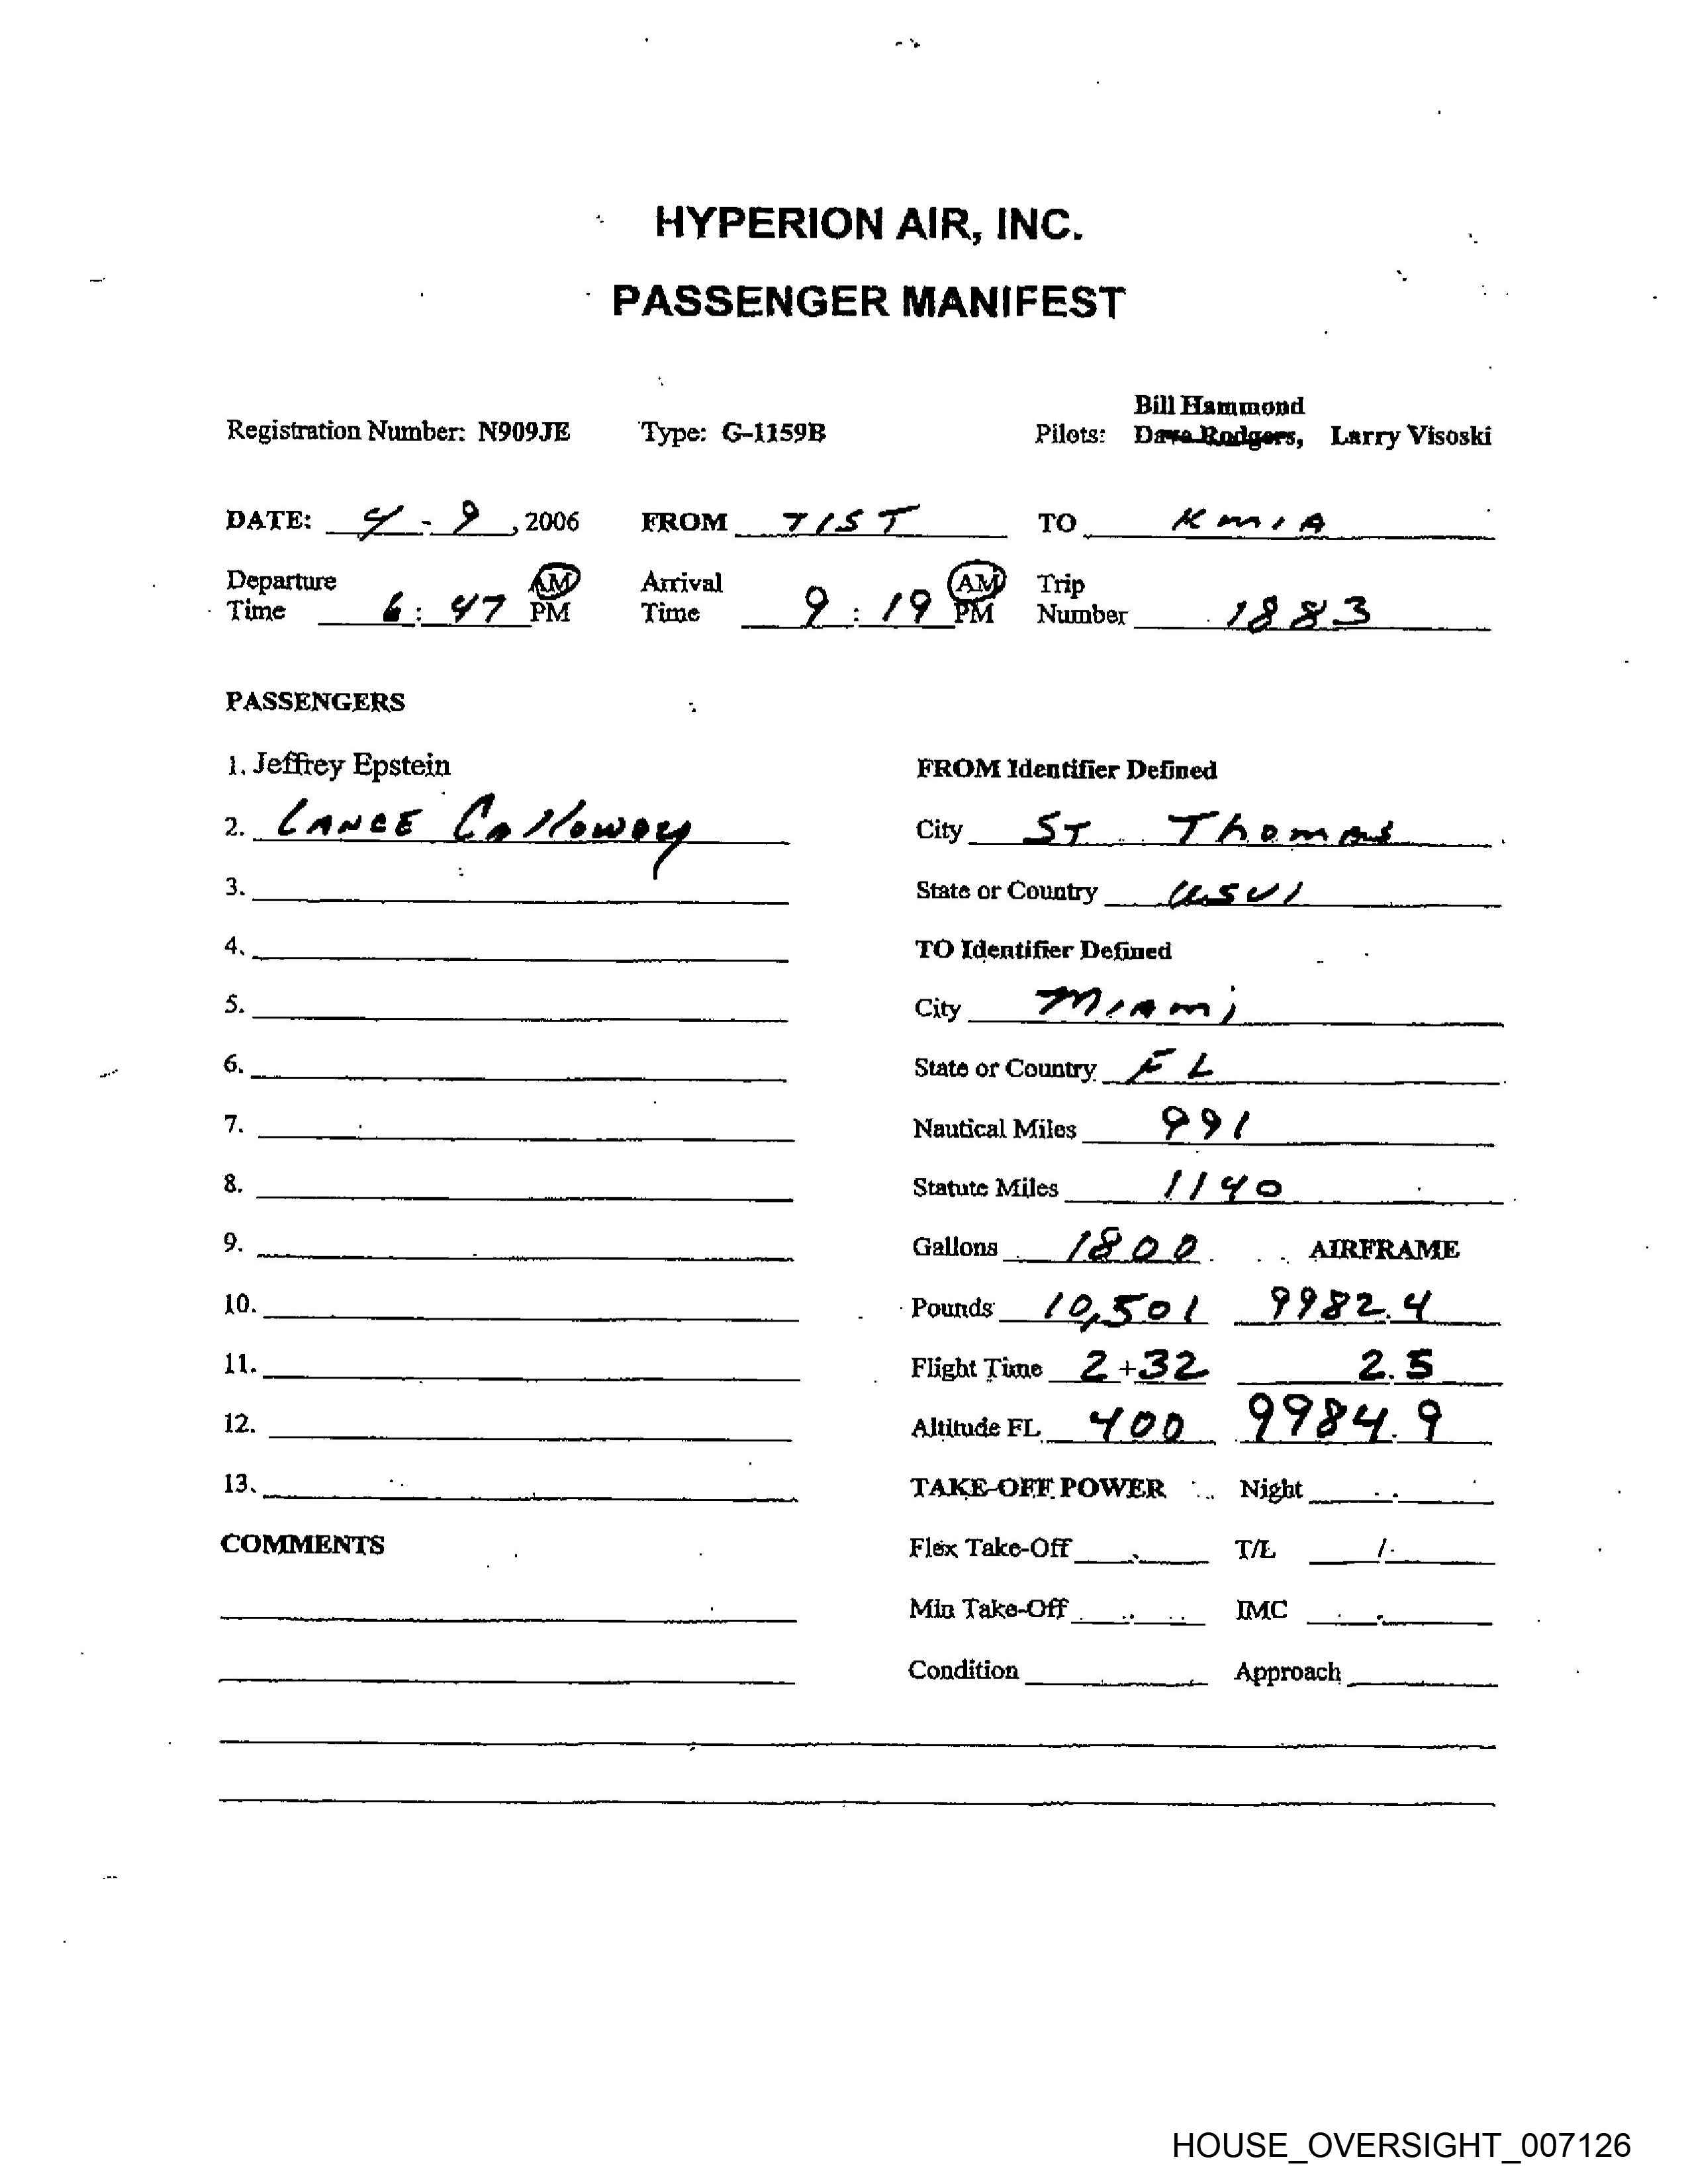 HYPERION AIR, INC.
PASSENGER MANIFEST
Bill Hammond
Registration Number: N909JE Type: G-1159B Pilots: Dave Rodgers, Larry Visoski
DATE: 4 - 9, 2006 FROM TIST TO KMIA
Departure AM Arrival AM Trip
Time 6:47 PM Time 9:19 PM Number 1883
PASSENGERS
1. Jeffrey Epstein FROM Identifier Defined
2. LANCE Calloway City ST Thomas
3. State or Country USVI
4. TO Identifier Defined
5. City Miami
6. State or Country FL
7. Nautical Miles 991
8. Statute Miles 1140
9. Gallons 1800 AIRFRAME
10. Pounds 10,501 9982.4
11. Flight Time 2+32 2.5
12. Altitude FL 400 9984.9
13. TAKE-OFF POWER Night .
COMMENTS Flex Take-Off T/L /
Min Take-Off IMC .
Condition Approach
HOUSE_OVERSIGHT_007126